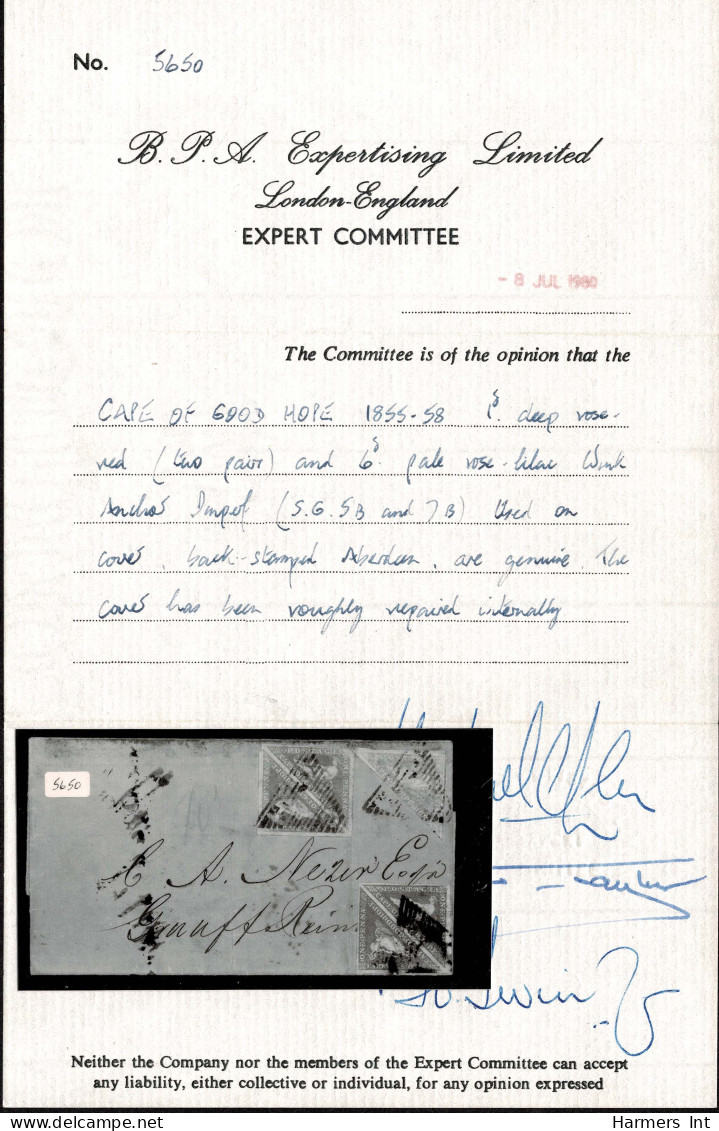 No. 5650
B. P. A. Expertising Limited
London-England
EXPERT COMMITTEE
- 8 JUL 1980
The Committee is of the opinion that the
CAPE OF GOOD HOPE 1855-58 1d. deep rose-
red (two pair) and 6d. pale rose-lilac Wmk
Anchor Imperf (S.G. 5B and 7B) Used on
cover, back-stamped Aberdeen, are genuine. The
cover has been roughly repaired internally
5650
C A. Esqr
Graaff Rein
Neither the Company nor the members of the Expert Committee can accept
any liability, either collective or individual, for any opinion expressed
Harmers Int